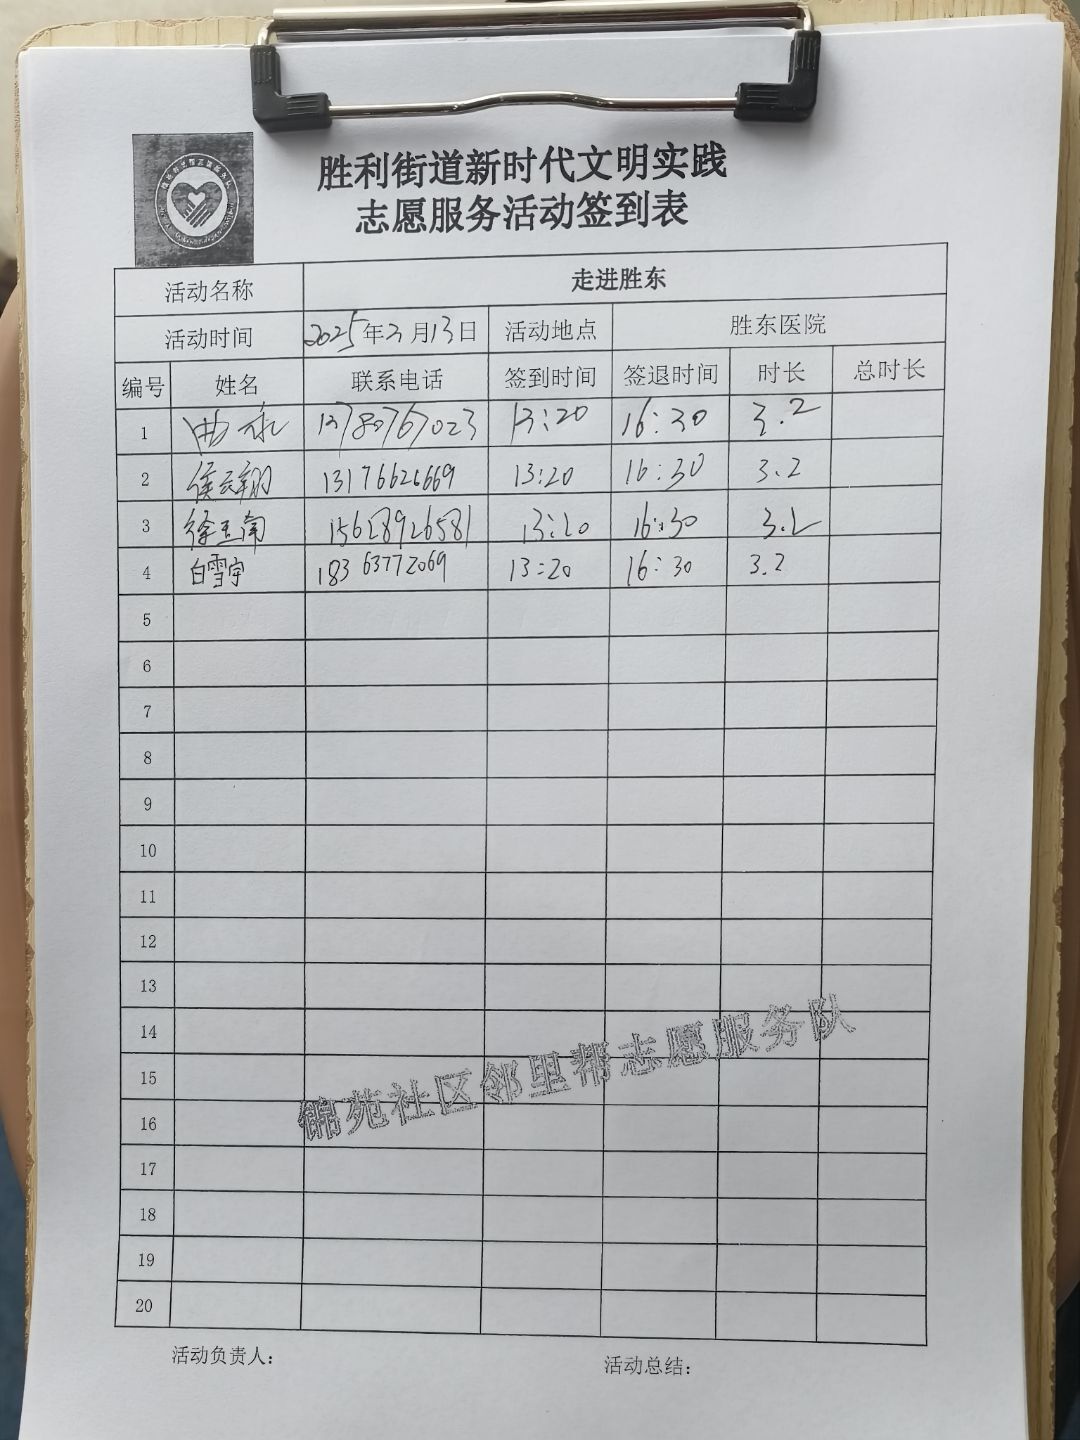 胜利街道新时代文明实践
志愿服务活动签到表
活动名称 走进胜东
活动时间 2025年3月13日 活动地点 胜东医院
编号 姓名 联系电话 签到时间 签退时间 时长 总时长
1 曲永 13780767023 13:20 16:30 3.2
2 侯云翔 13176626669 13:20 16:30 3.2
3 徐玉南 15628926581 13:20 16:30 3.2
4 白雪宇 18363772069 13:20 16:30 3.2
5
6
7
8
9
10
11
12
13
14
15
16
17
18
19
20
锦苑社区邻里帮志愿服务队
活动负责人: 活动总结: